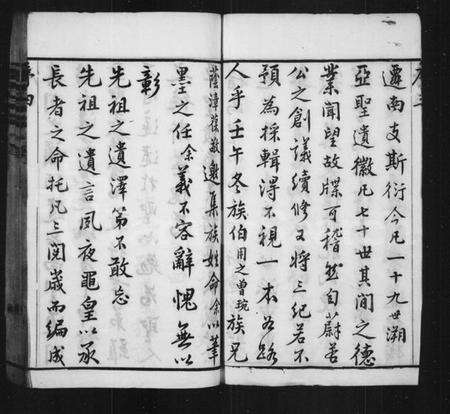 遷南支斯衍今凡一十九世溯
亞聖遺徽凡七十世其間之德
業聞望故牒可稽然自蔚若
公之創議續修又將三紀若不
預為採輯得不視一本為路
人乎壬午冬族伯用之曾琬族兄
蔭漳葆故邀集族姓命余以筆
墨之任余義不容辭愧無以
彰
先祖之遺澤第不敢忘
先祖之遺言夙夜黽皇以承
長者之命托凡三閱歲而編成